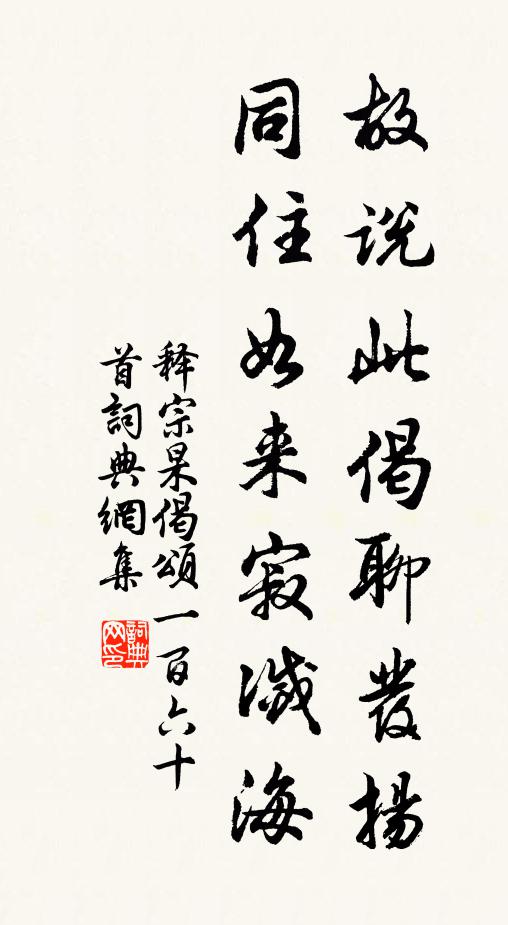 故说此偈聊發揚
同住如来寂滅海
释宗杲偈頌一百六十
首詞典網集
詞典
网印